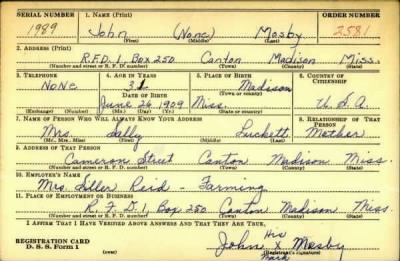 SERIAL NUMBER 1. NAME (Print) ORDER NUMBER
1989 John (None) Mosby 2581
(First) (Middle) (Last)
2. ADDRESS (Print)
R.F.D. 1 Box 250 Canton Madison Miss.
(Number and street or R. F. D. number) (Town) (County) (State)
3. TELEPHONE 4. AGE IN YEARS 5. PLACE OF BIRTH 6. COUNTRY OF CITIZENSHIP
None 31 Madison
DATE OF BIRTH (Town or county)
June 26 1909 Miss. U.S.A.
(Exchange) (Number) (Mo.) (Day) (Yr.) (State or country)
7. NAME OF PERSON WHO WILL ALWAYS KNOW YOUR ADDRESS 8. RELATIONSHIP OF THAT PERSON
Mrs. Sally Luckett Mother
(Mr., Mrs., Miss) (First) (Middle) (Last)
9. ADDRESS OF THAT PERSON
Cameron Street Canton Madison Miss.
(Number and street or R. F. D. number) (Town) (County) (State)
10. EMPLOYER'S NAME
Mrs. Reid - Farming
11. PLACE OF EMPLOYMENT OR BUSINESS
R.F.D. 1, Box 250 Canton Madison Miss.
(Number and street or R. F. D. number) (Town) (County) (State)
I AFFIRM THAT I HAVE VERIFIED ABOVE ANSWERS AND THAT THEY ARE TRUE.
REGISTRATION CARD
D. S. S. Form 1
His
John X Mosby
Mark
(Registrant's signature)